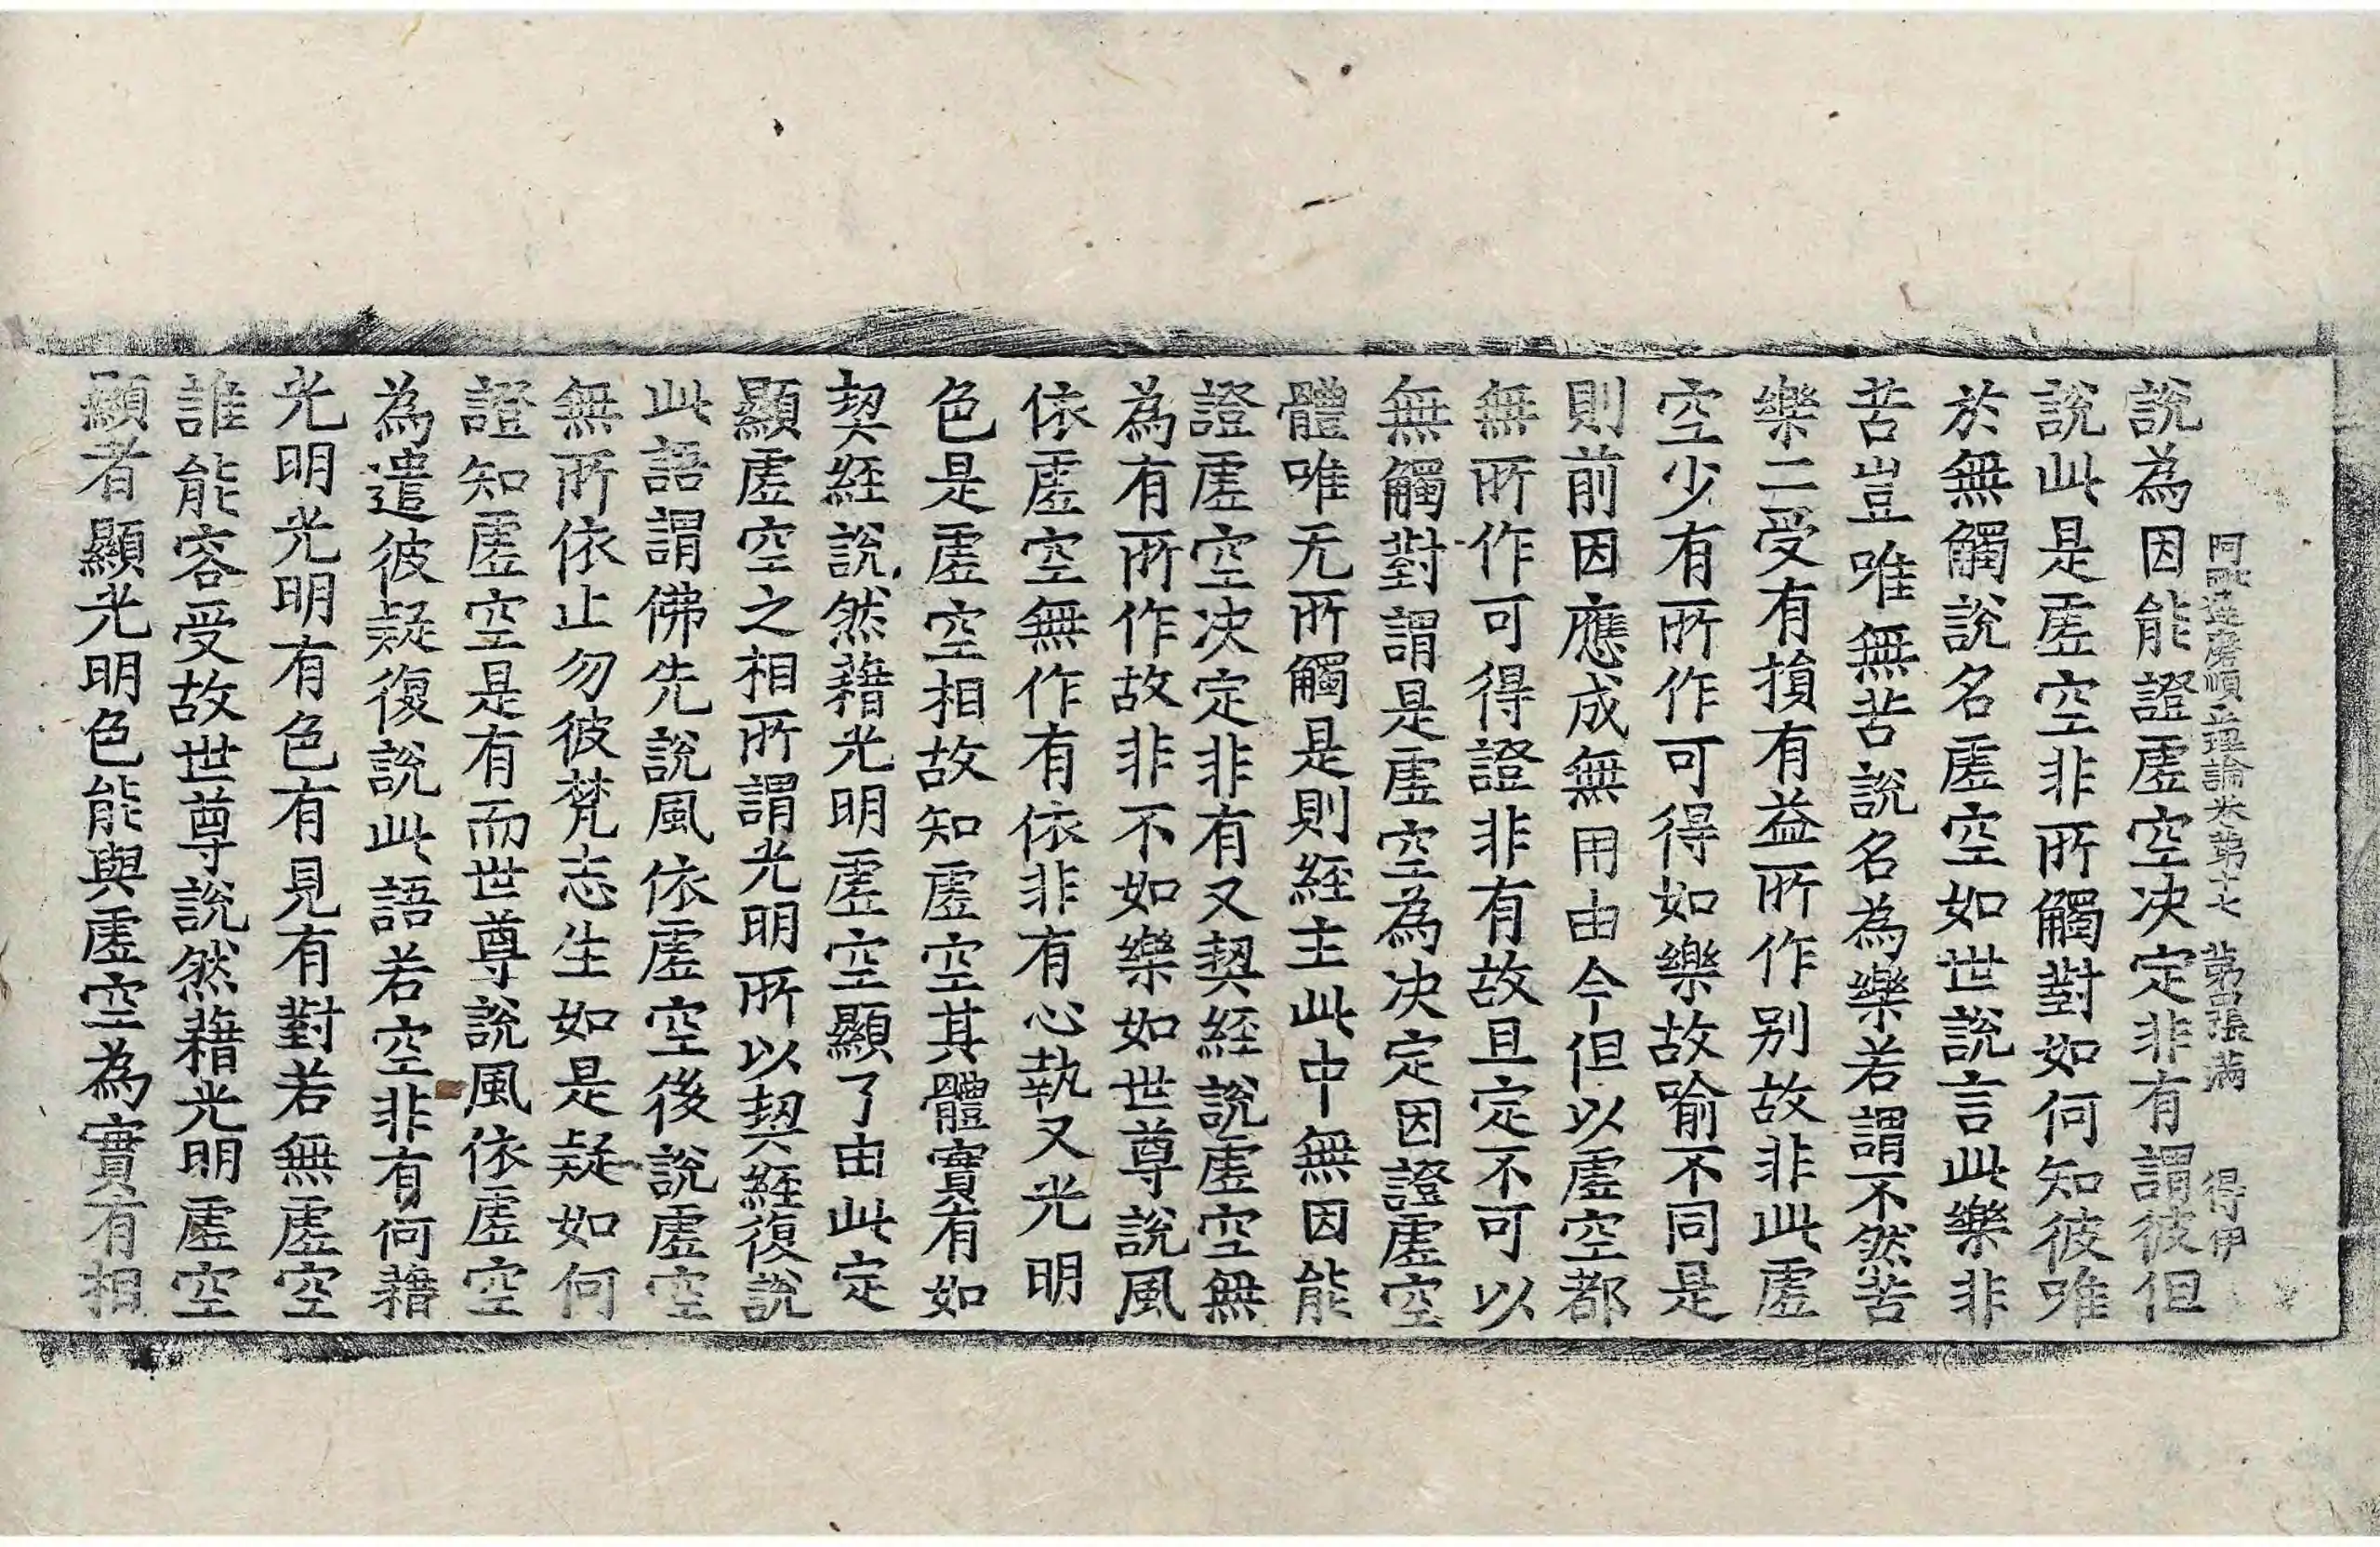 阿毗達磨順正理論卷第十七 第四張 滿 得伊
說為因能證虛空决定非有謂彼但
說此是虛空非所觸對如何知彼唯
於無觸說名虛空如世說言此樂非
苦豈唯無苦說名為樂若謂不然苦
樂二受有損有益所作别故非此虛
空少有所作可得如樂故喻不同是
則前因應成無用由今但以虛空都
無所作可得證非有故且定不可以
無觸對謂是虛空為决定因證虛空
體唯无所觸是則經主此中無因能
證虛空决定非有又契經說虛空無
為有所作故非不如樂如世尊說風
依虛空無作有依非有心執又光明
色是虛空相故知虛空其體實有如
契經說然藉光明虛空顯了由此定
顯虛空之相所謂光明所以契經復說
此語謂佛先說風依虛空後說虛空
無所依止勿彼梵志生如是疑如何
證知虛空是有而世尊說風依虛空
為遣彼疑復說此語若空非有何藉
光明光明有色有見有對若無虛空
誰能容受故世尊說然藉光明虛空
顯者顯光明色能與虛空為實有相